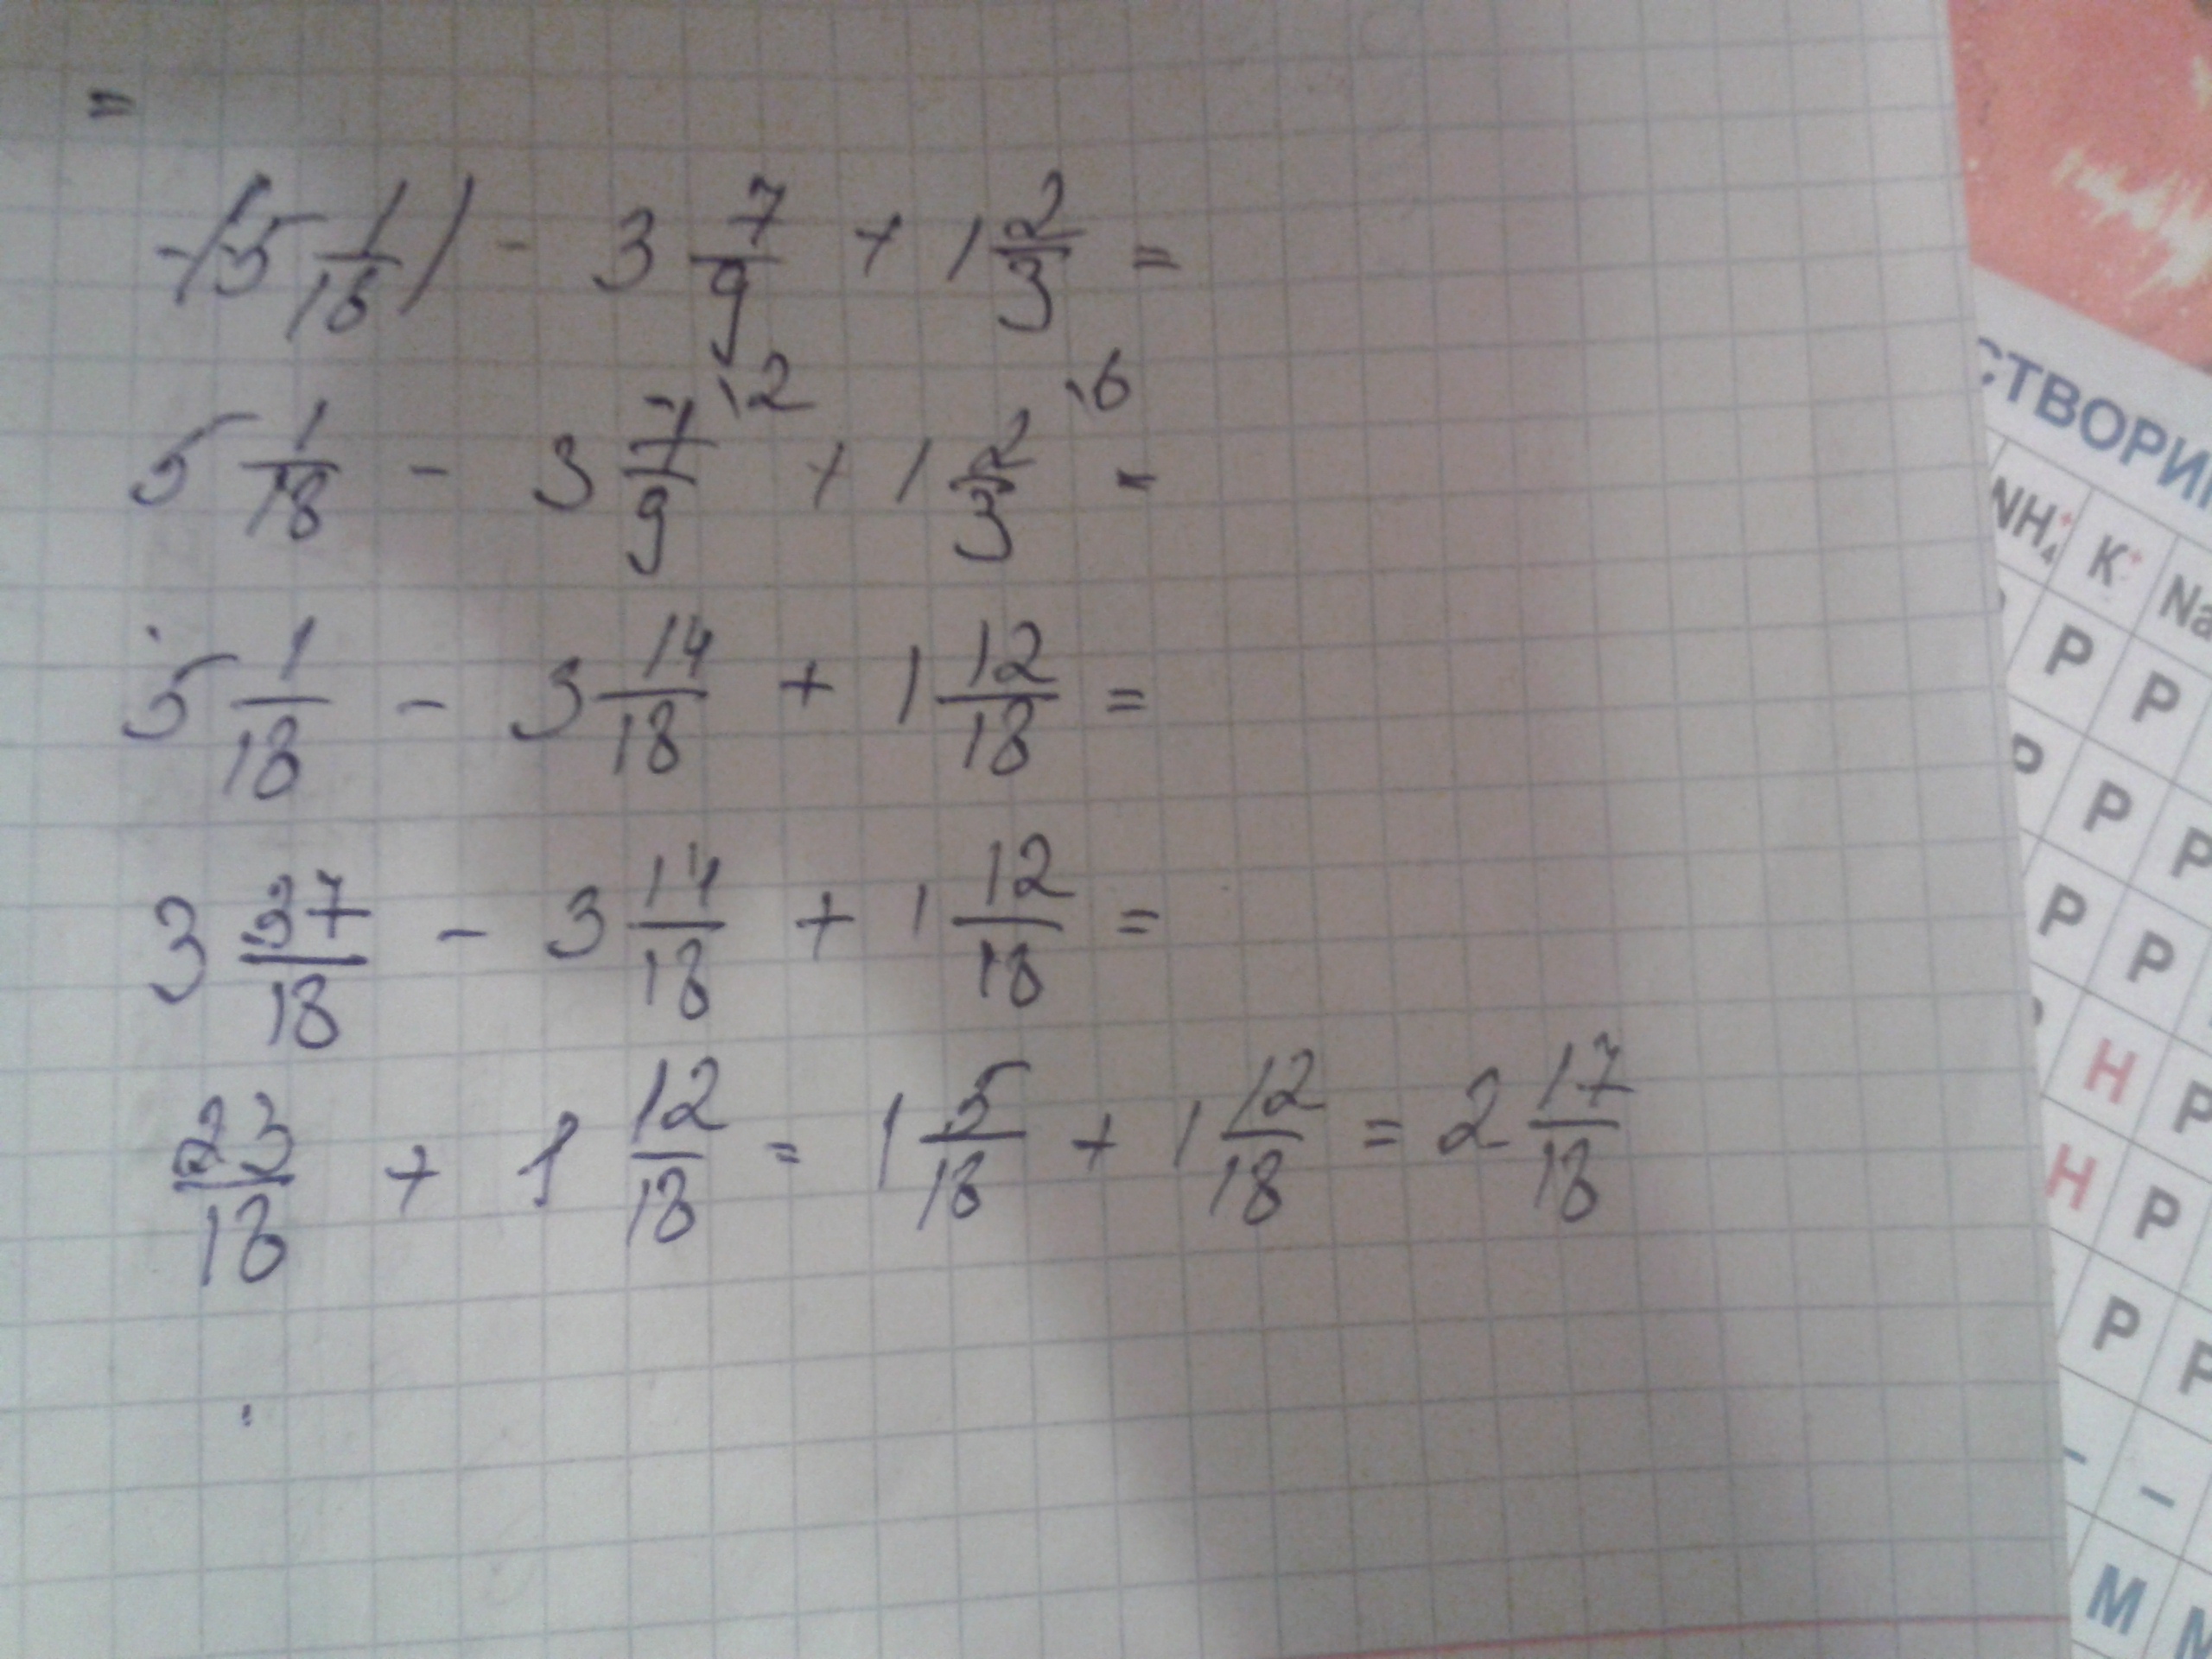 =
-(-5 1/18) - 3 7/9 + 1 2/3 =
5 1/18 - 3 7/9 ·2 + 1 2/3 ·6 =
5 1/18 - 3 14/18 + 1 12/18 =
3 37/18 - 3 14/18 + 1 12/18 =
23/18 + 1 12/18 = 1 5/18 + 1 12/18 = 2 17/18
СТВОРИ
NH₄⁺ K⁺ Na
P P
P P P
P P P
H P
H P
P P
- -
M M